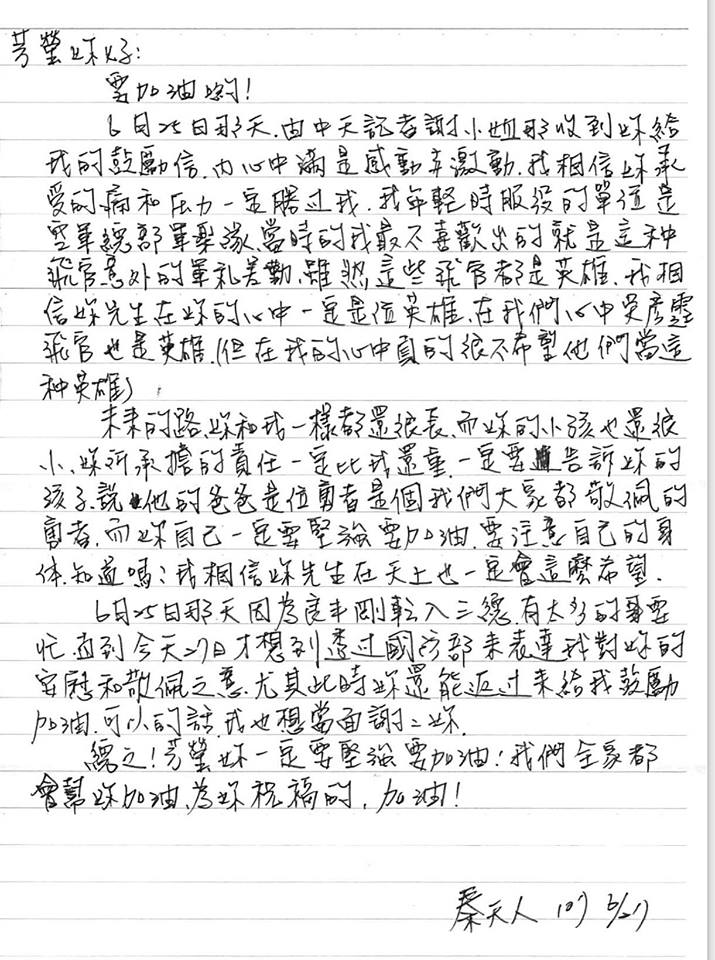 芳螢妳好:
要加油喲!
6月25日那天,由中天記者謝小姐那收到妳給
我的鼓勵信,內心中滿是感動幷激動,我相信妳承
受的痛和压力一定勝过我,我年輕時服役的單位是
空軍總部軍樂隊,當時的我最不喜歡出的就是這种
飛官意外的軍礼差勤,雖然這些飛官都是英雄,我相
信妳先生在妳的心中一定是位英雄,在我們心中吳彥霆
飛官也是英雄,(但在我的心中真的很不希望他們當這
种英雄)
未來的路,妳和我一樣都還很長,而妳的小孩也還很
小,妳所承擔的責任一定比我還重,一定要告訴妳的
孩子,說他的爸爸是位勇者是個我們大家都敬佩的
勇者,而妳自己一定要堅強要加油,要注意自己的身
体,知道嗎?我相信妳先生在天上也一定會這麼希望.
6月25日那天因為良丰剛転入三總,有太多的事要
忙,直到今天27日才想到透过國防部來表達我對妳的
安慰和敬佩之意,尤其此時妳還能返过來給我鼓勵
加油,可以的話,我也想當面謝謝妳.
總之!芳螢妳一定要堅強要加油!我們全家都
會幫妳加油,為妳祝福的,加油!
秦天人 107 6/27